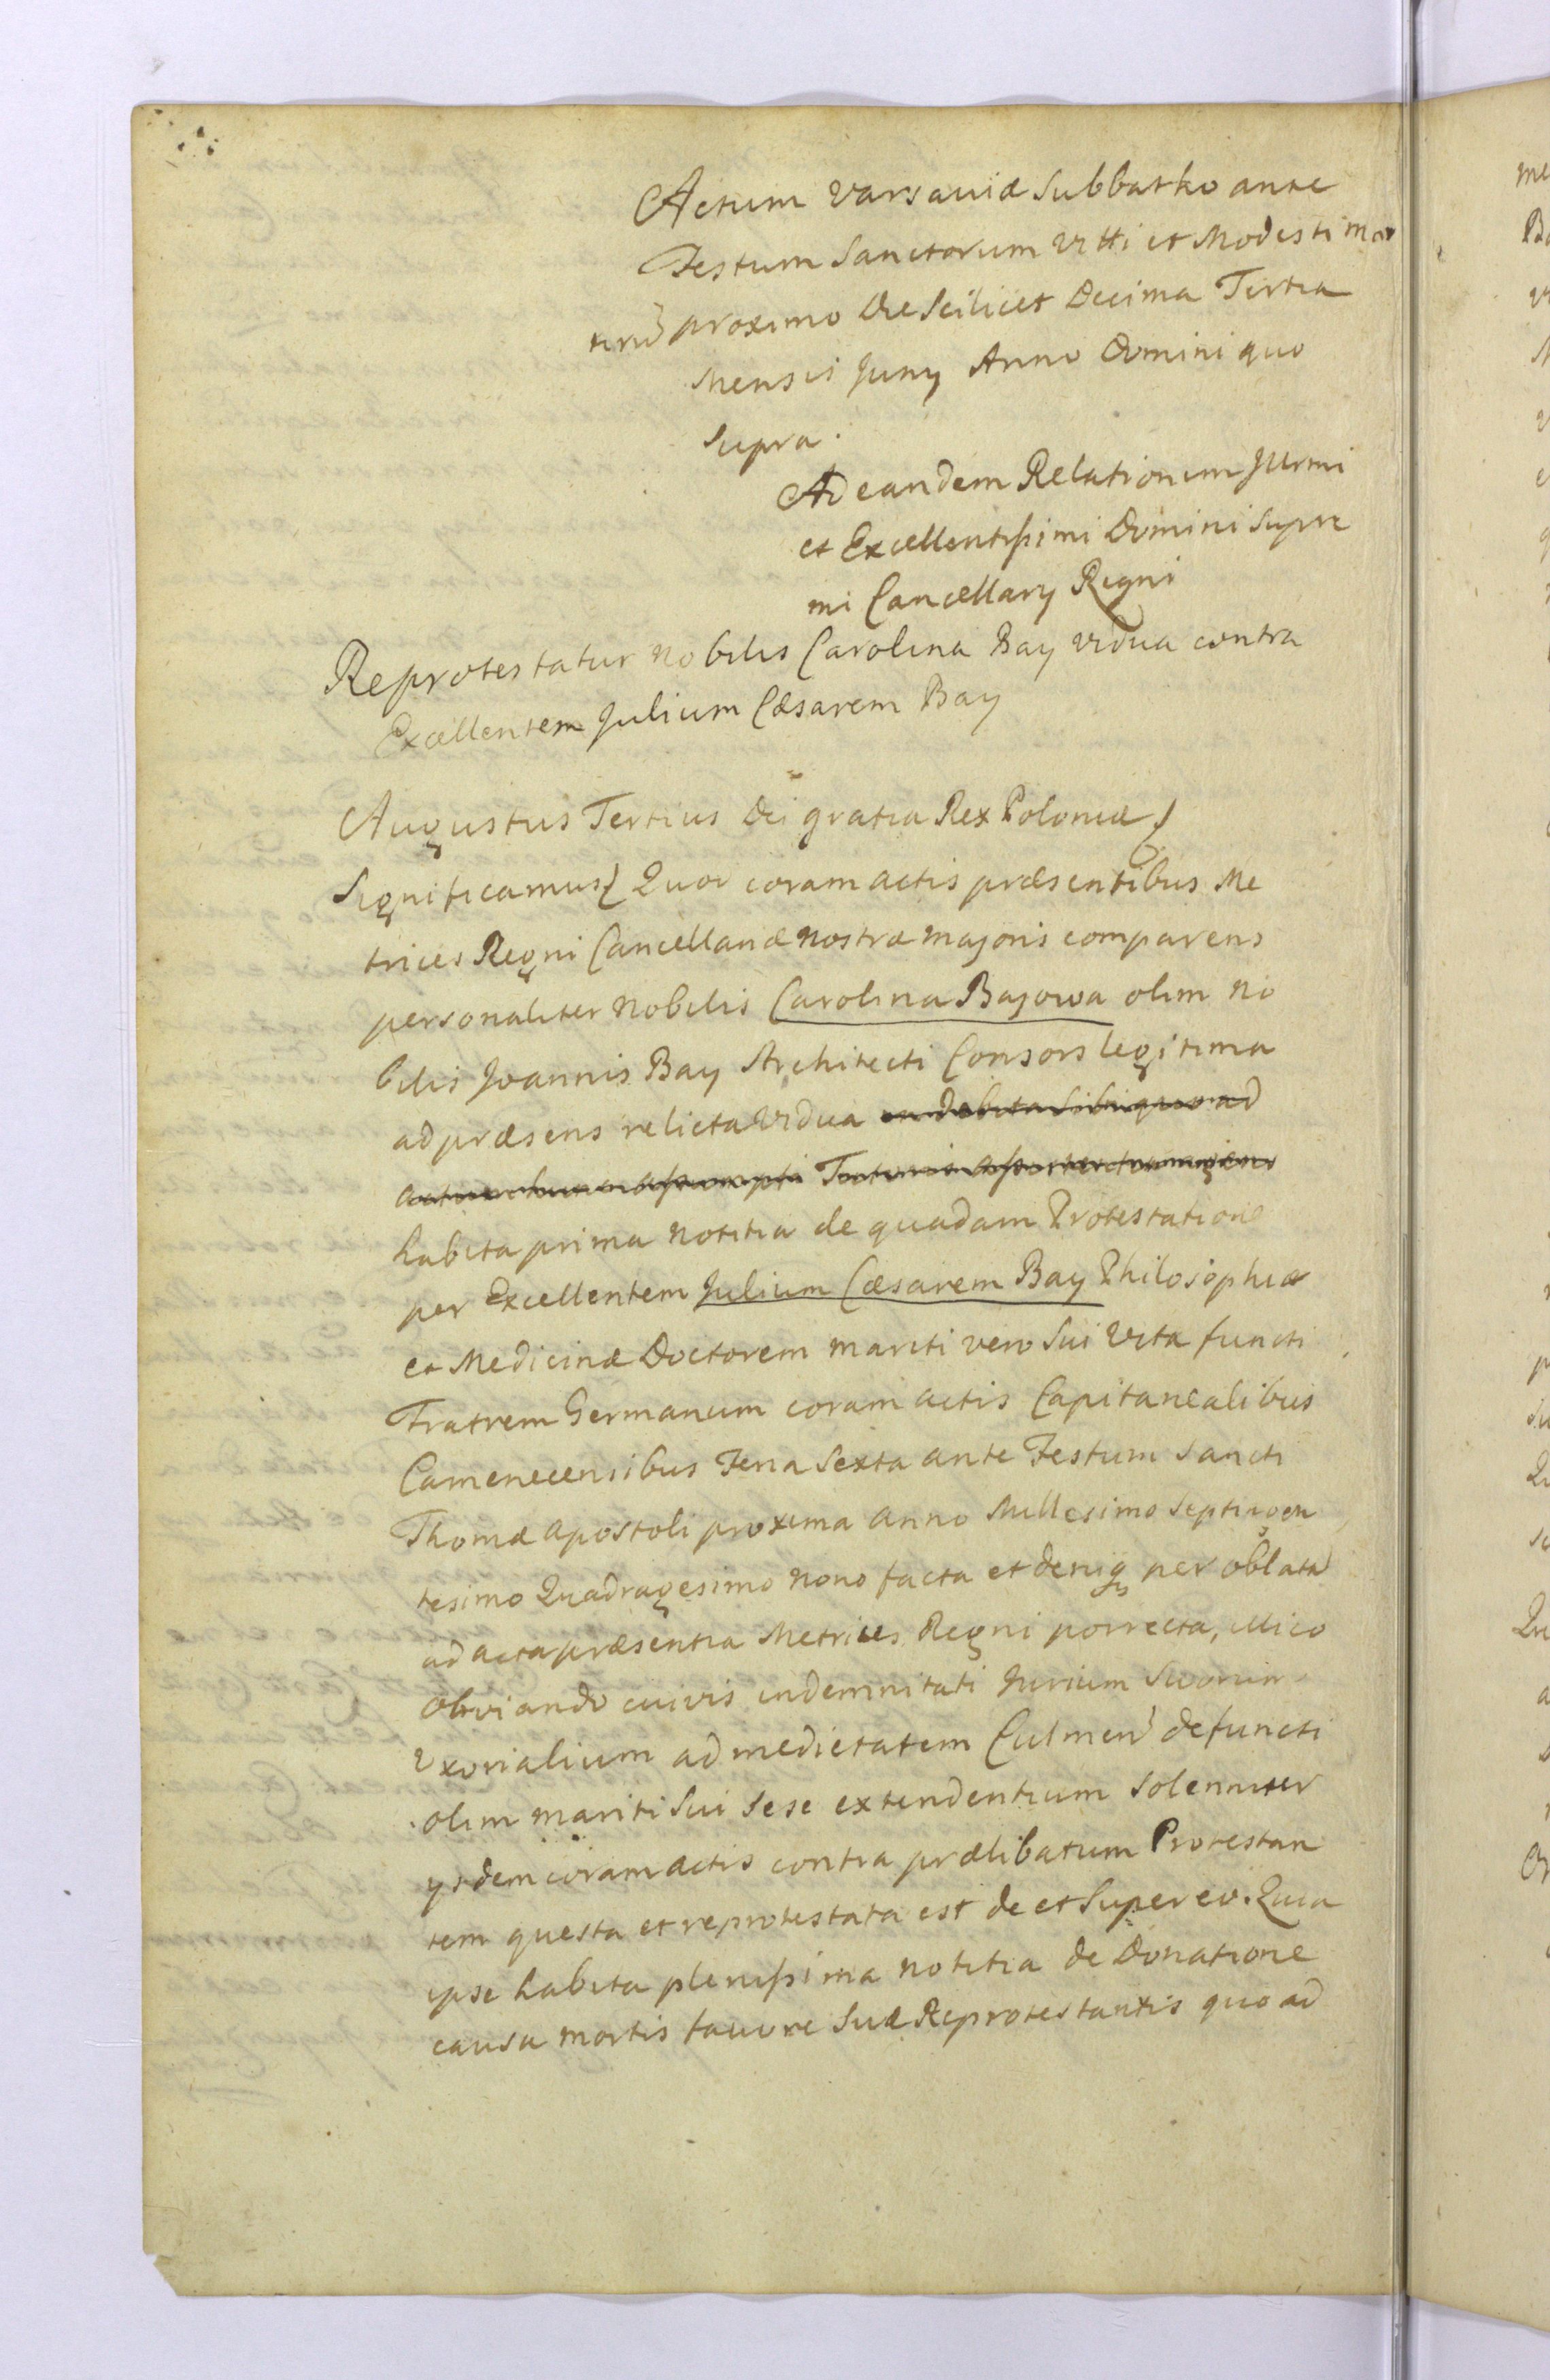 Actum Varsaviæ Sabbatho ante
Festum Sanctorum Vitti et Modesti mar
tirũ proximo Die Scilicet Decima Tertia
Mensis Juny Anno Domini quo
Supra.
Ad eandem Relationem Jllrmi
et Excellentissimi Domini Supre
mi Cancellary Regni
Reprotestatur Nobilis Carolina Bay vidua contra
Excellentem Julium Cæsarem Bay
Augustus Tertius Dei gratia Rex Poloniæ
Significamus Quod coram actis præsentibus Me
trices Regni Cancellariæ nostræ majoris comparens
personaliter Nobilis Carolina Bajowa olim No
bilis Joannis Bay Architecti Consors legitima
ad præsens relicta Vidua
habita prima notitia de quadam Protestatione
per Excellentem Julium Cæsarem Bay Philosophiæ
et Medicinæ Doctorem mariti vero Sui Vita functi
Fratrem Germanum coram actis Capitanealibus
Camenecensibus Feria Sexta ante Festum Sancti
Thomæ Apostoli proxima Anno Millesimo Septingen
tesimo Quadragesimo Nono facta et deniq per oblatã
ad acta præsentia Metrices Regni porrecta, illico
obviando cuivis indemnitati Jurium Suorum
Uxorialium ad medietatem Culmenˀ defuncti
olim mariti Sui Sese extendentium Solenniter
ysdem coram actis contra prælibatum Protestan
tem questa et reprotestata est de et Super eo. Quia
ipse habita plenissima notitia de Donatione
causa mortis favore Suæ Reprotestantis quo ad